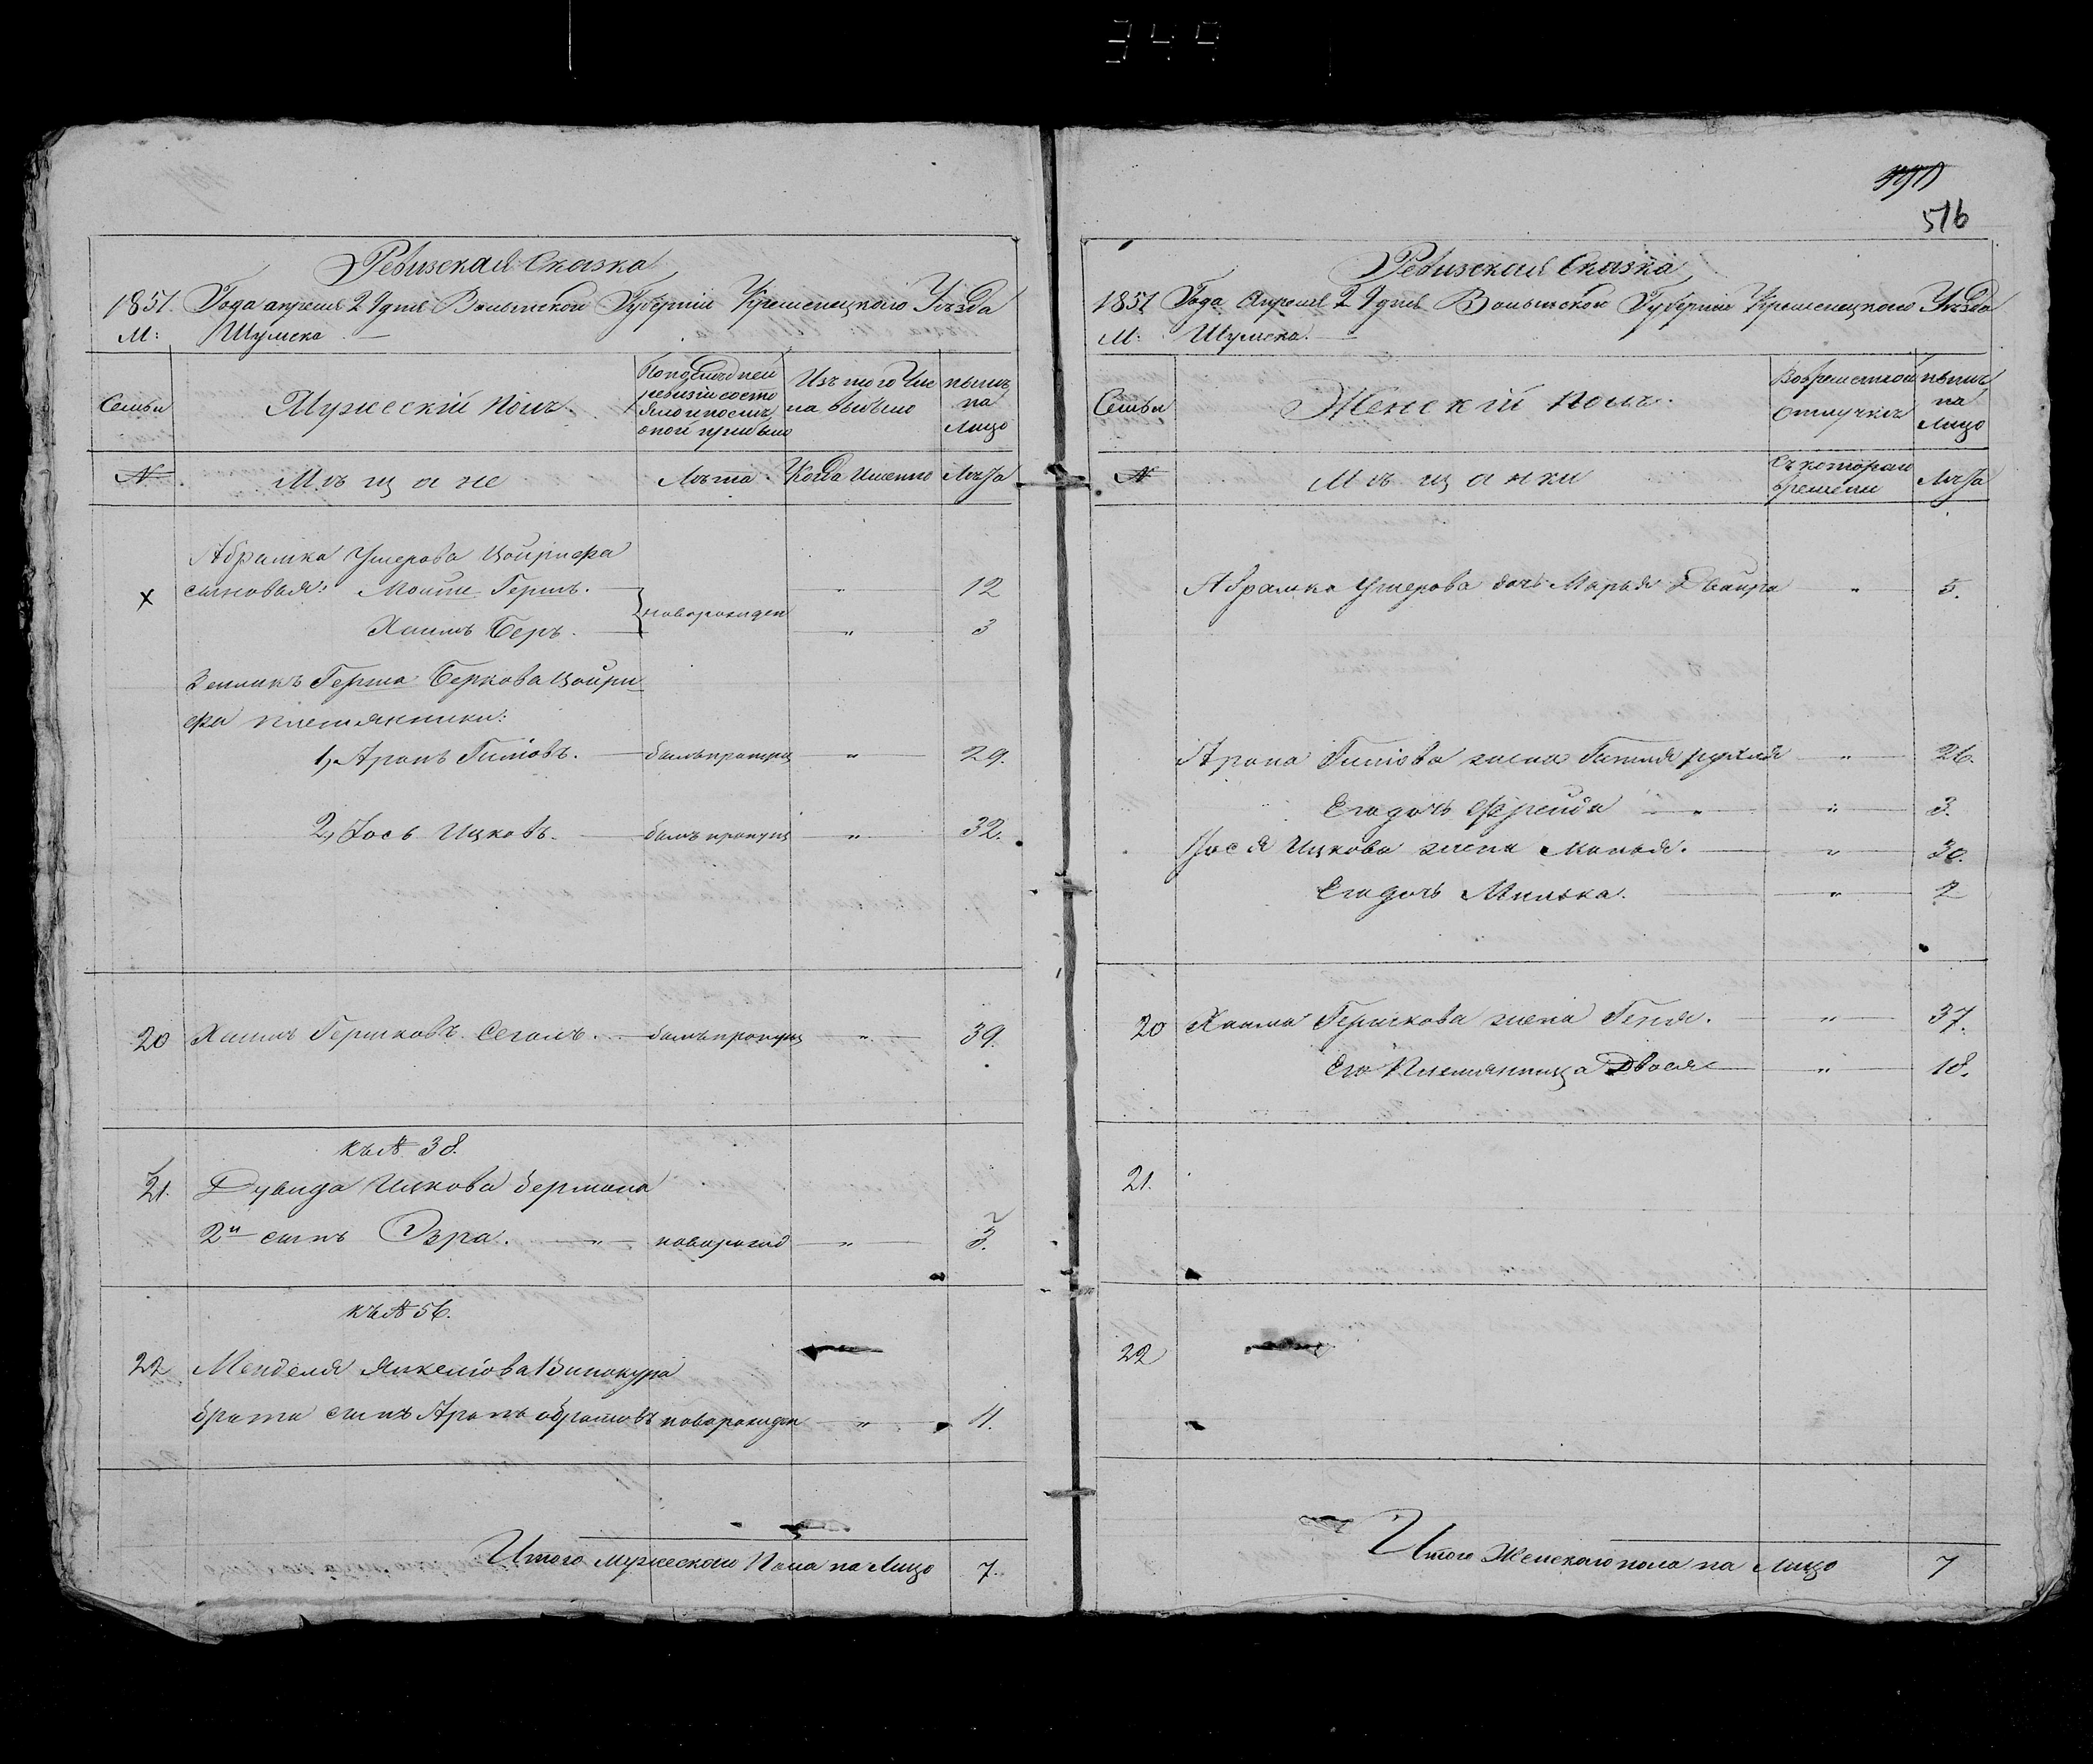 344
516
Ревизская Сказка
1851. Года апреля 29 дня Волынской Губернии Кременецкого Уѣзда
М: Шумска
Семьи
Мужескій полъ.
По последней ревизіи состояло и послѣ оной прибыло
Изъ того числа выбыло
нынѣ на лицо
№
Мѣщане
Лѣта
Когда именно
Лѣта
Абрамка Умерова Цойрифа
сыновья: Мошко Гершъ. новорожден " 12
Хаимъ Беръ. " 3
Герша Беркова Цойри
фа племянники:
1, Аронъ Гитовъ. былъ пропущ " 29.
2, Іось Ицковъ. былъ пропущ " 32.
20 Хаимъ Гершковъ Сегалъ. былъ пропущ " 39.
къ № 38.
21. Дувида Ицкова Бермана
2й сынъ Эзра. " новорожд " 3.
къ № 56.
22 Менделя Янкелiова Винокура
брата сынъ Аронъ новорожден " 4.
Итого мужескаго пола на лицо 7.
Ревизская Сказка
1851 Года Апреля 29 дня Волынской Губернии Кременецкого Уѣзда
М: Шумска.
Семьи
Женскій полъ.
Во временной отлучкѣ
нынѣ на лицо
№
Мѣщанки
Съ которого времени
Лѣта
Абрамка Умерова дочь Марья Двойра " 5.
Арона Гитова жена Гитля Рухля " 26.
Его дочь Фрейда " " 3.
Іося Ицкова жена Манья. " 30.
Его дочь Милька. " 2
20 Хаима Гершкова жена Геня. " 37.
Его Племянница Двося " 18.
21.
22
Итого Женскаго пола на лицо 7